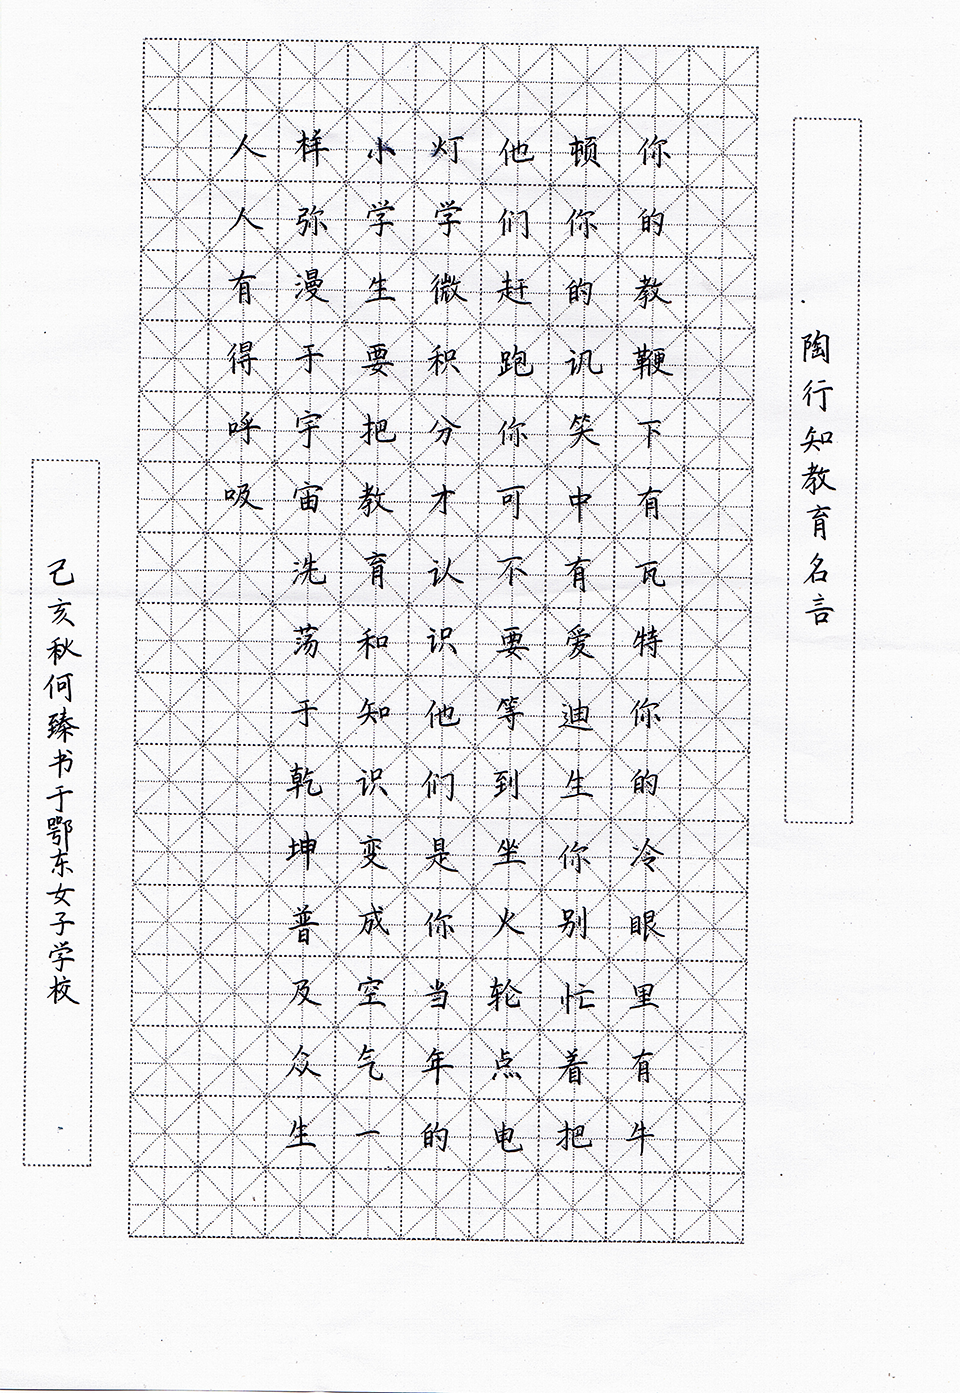 陶行知教育名言
你的教鞭下有瓦特你的冷眼里有牛
顿你的讥笑中有爱迪生你别忙着把
他们赶跑你可不要等到坐火轮点电
灯学微积分才认识他们是你当年的
小学生要把教育和知识变成空气一
样弥漫于宇宙洗荡于乾坤普及众生
人人有得呼吸
己亥秋何臻书于鄂东女子学校